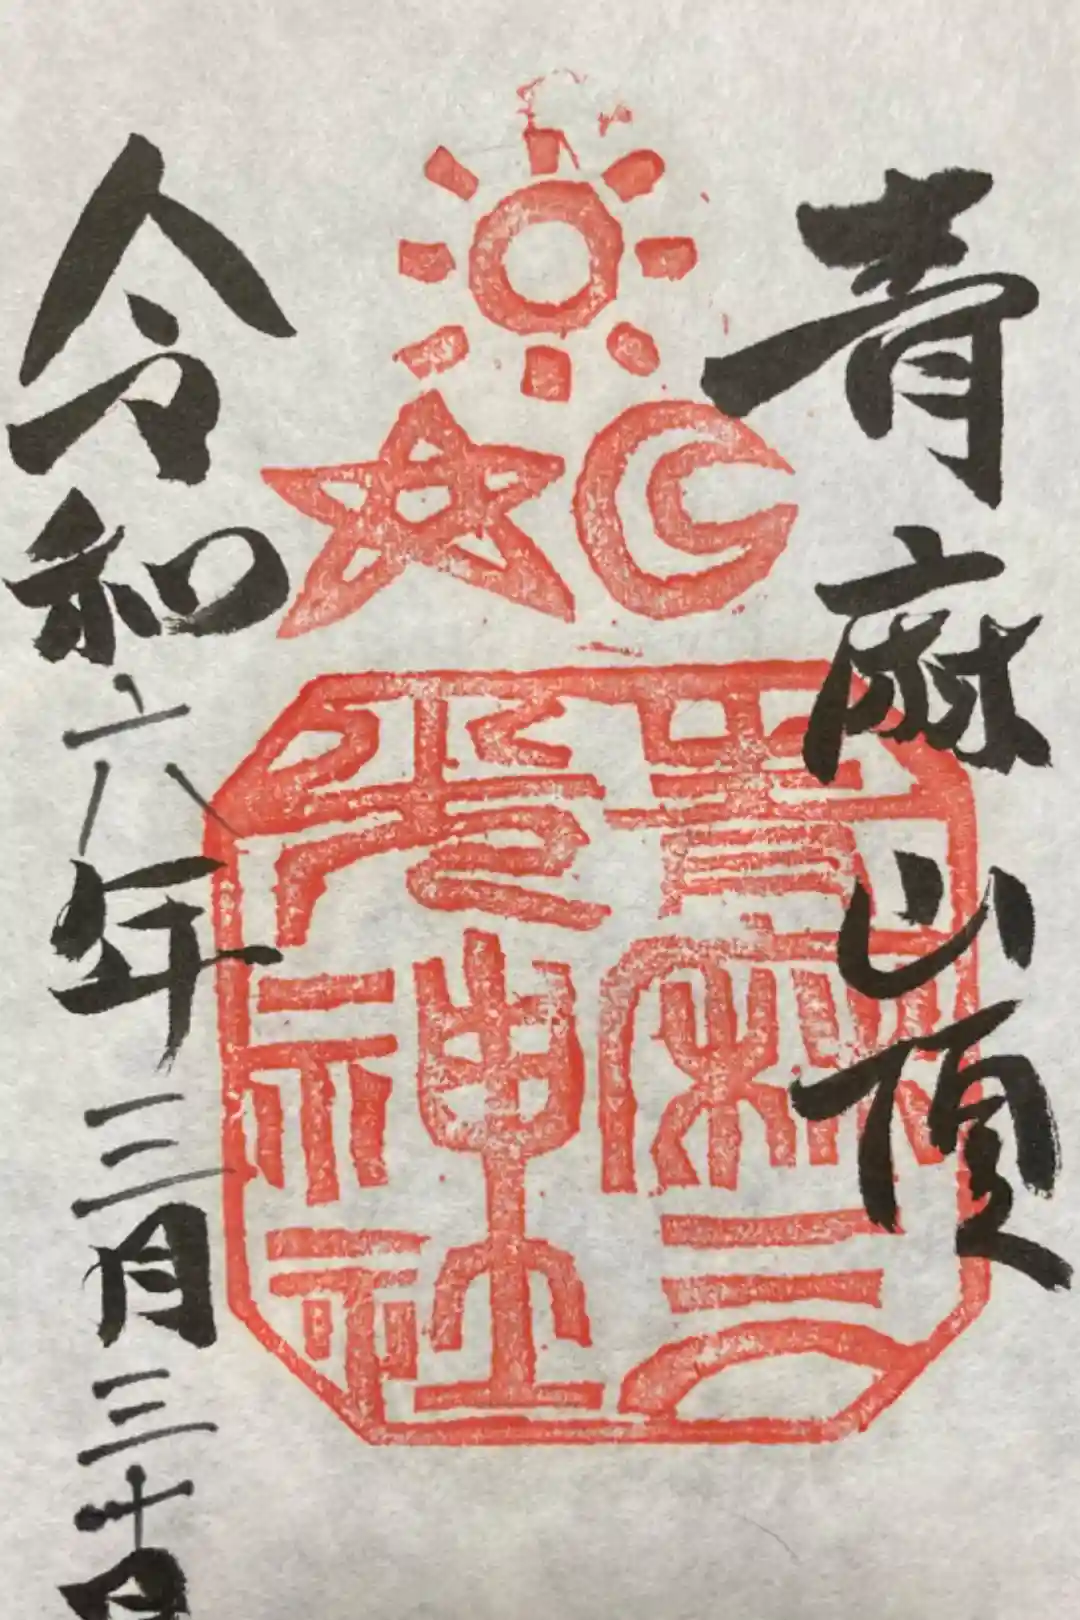 青麻山頂
青麻
神社
令和六年三月三十日